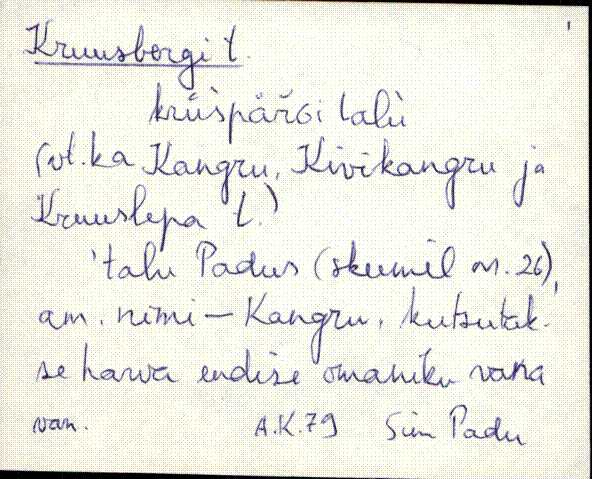 Kruusbergi t.
(vt. ka Kangru, Kivikangru ja
Kruuslepa t.)
'talu Padus (skeemil nr. 26),
am. nimi – Kangru, kutsutak-
se harva endise omaniku vana
van. A.K.79 Padu